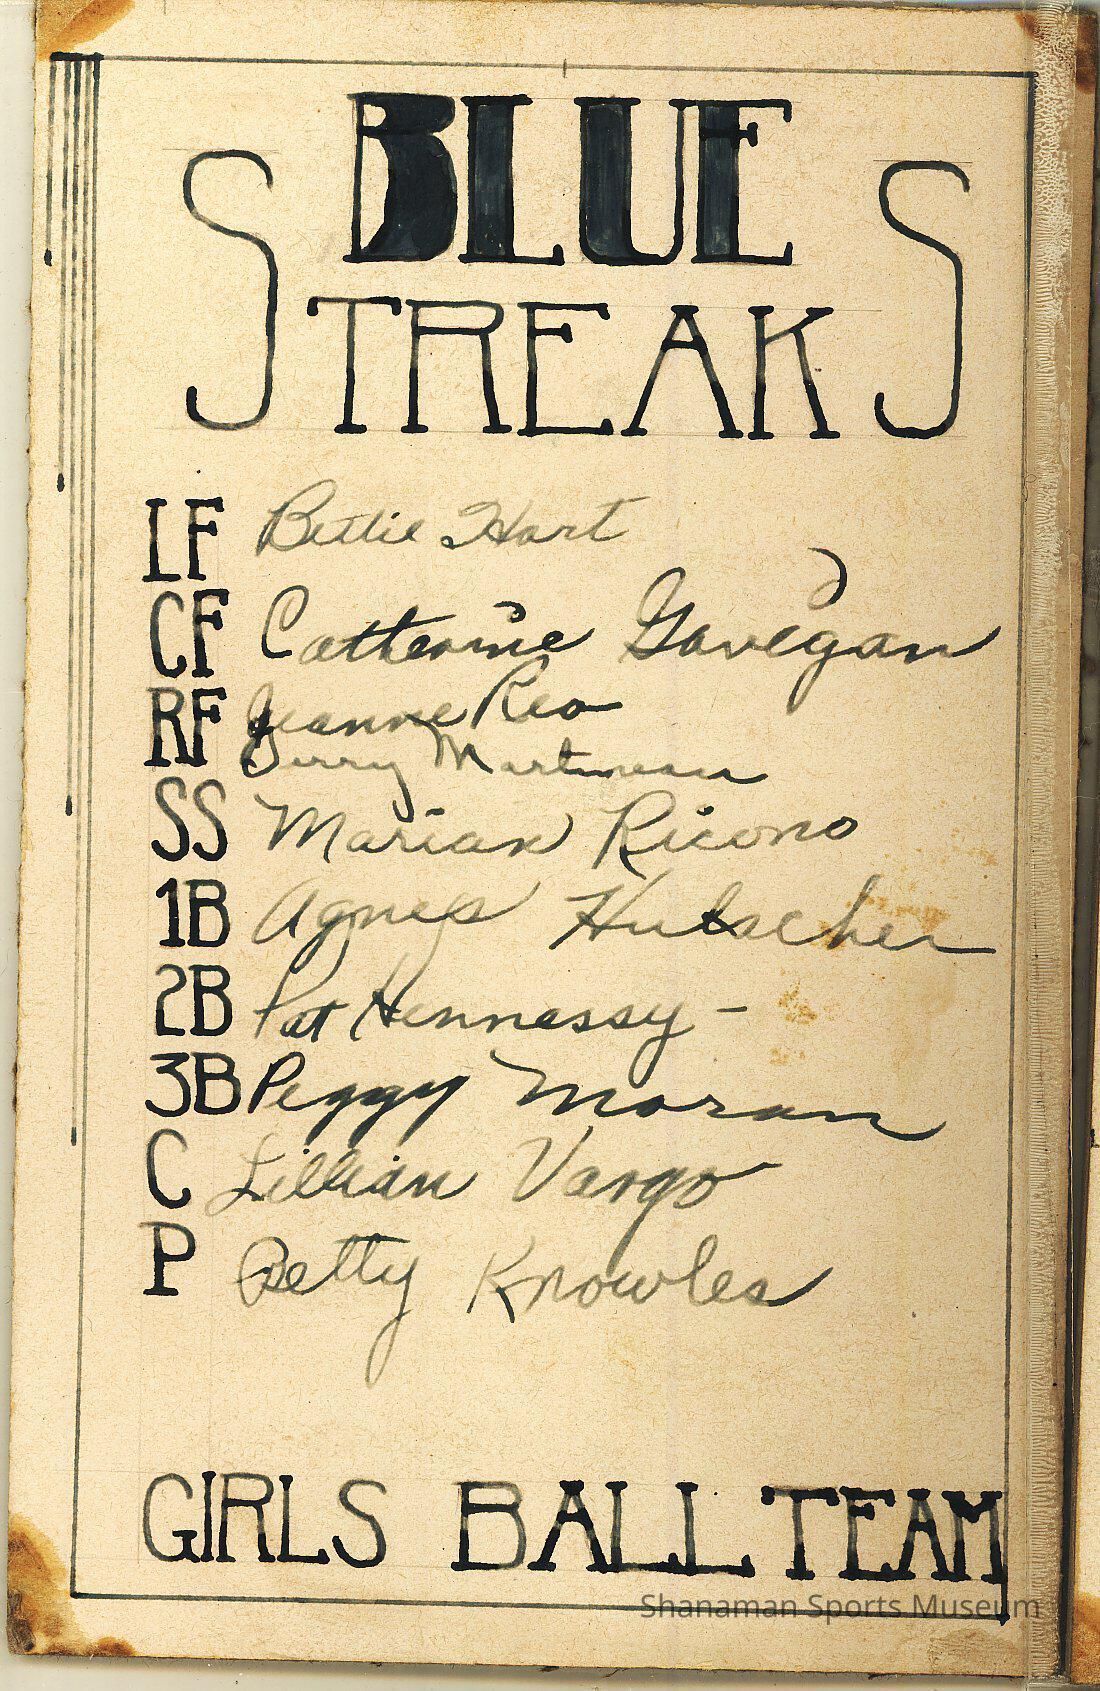 BLUE
STREAKS
LF Bettie Hart
CF Catherine Gavegan
RF Jeanne Reo
Gerry Martineau
SS Marian Ricono
1B Agnes Hutscher
2B Pat Hennessy -
3B Peggy Moran
C Lillian Vargo
P Betty Knowles
GIRLS BALL TEAM
Shanaman Sports Museum